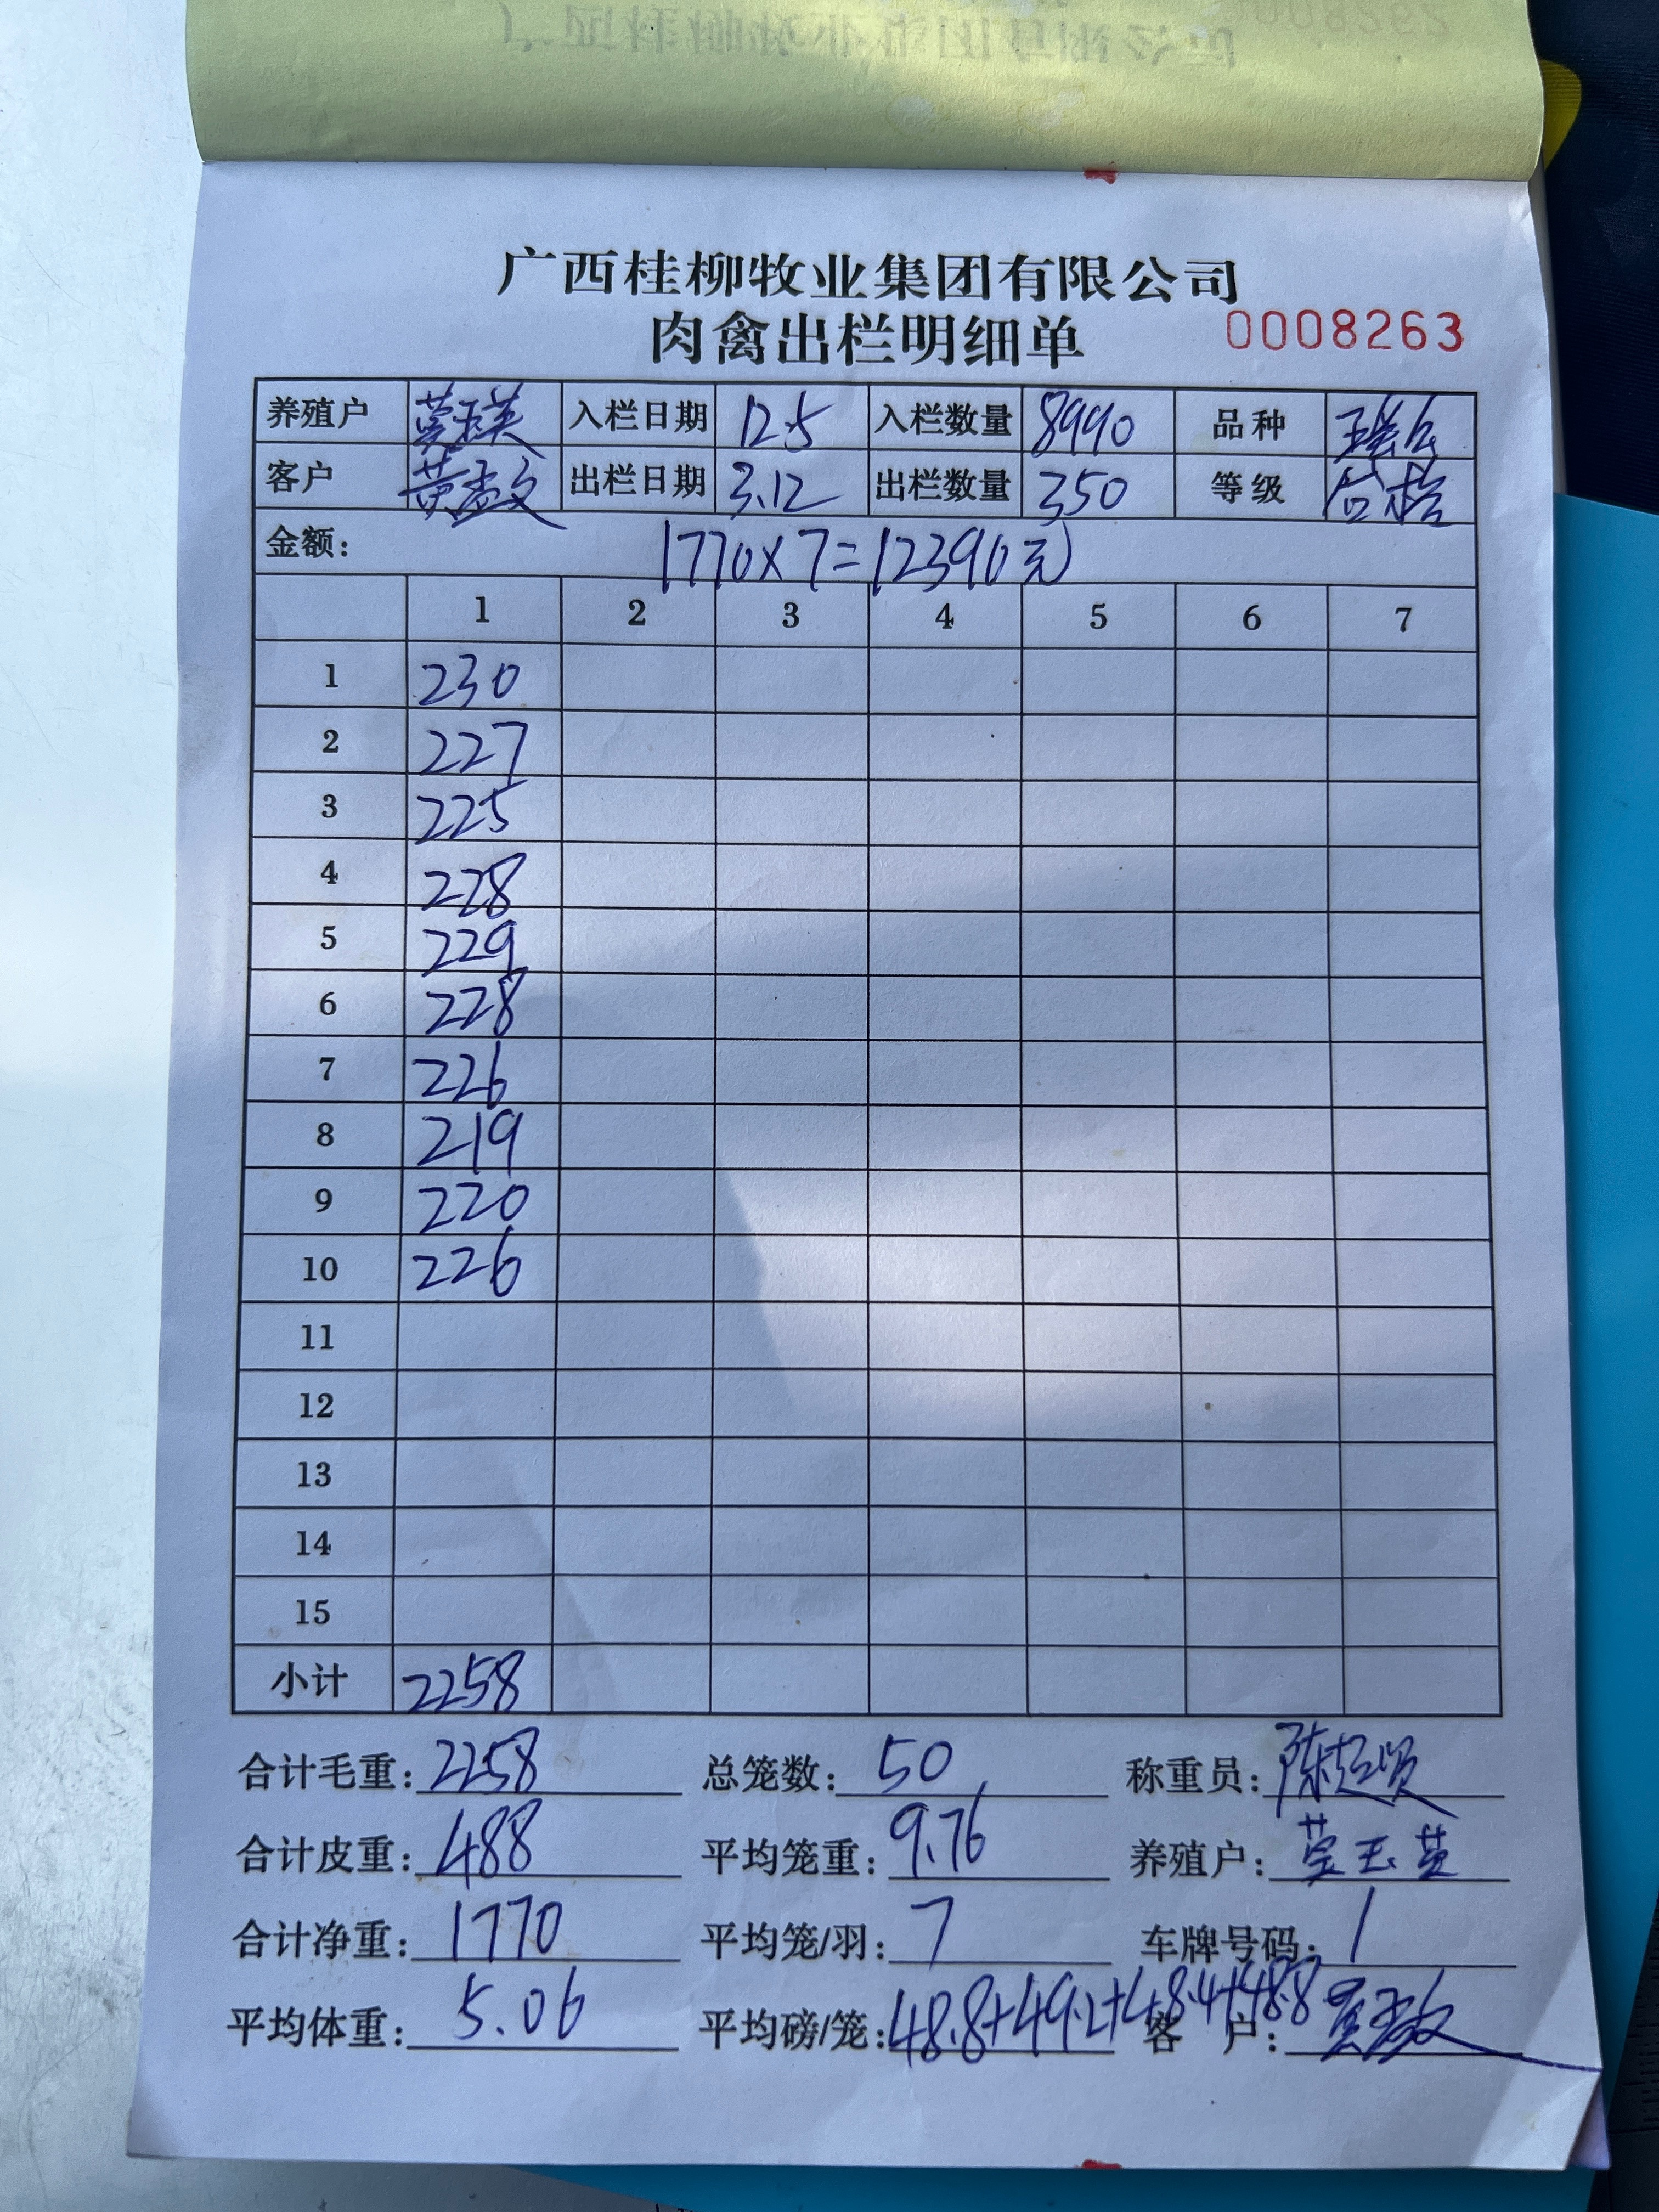 广西桂柳牧业集团有限公司
肉禽出栏明细单 0008263
养殖户 入栏日期 12.5 入栏数量 8990 品种
客户 黄孟文 出栏日期 3.12 出栏数量 350 等级 合格
金额: 1770×7=12390元
1 2 3 4 5 6 7
1 230
2 227
3 225
4 228
5 229
6 228
7 226
8 219
9 220
10 226
11
12
13
14
15
小计 2258
合计毛重: 2258 总笼数: 50 称重员: 陈超贤
合计皮重: 488 平均笼重: 9.76 养殖户:
合计净重: 1770 平均笼/羽: 7 车牌号码: 1
平均体重: 5.06 平均磅/笼: 48.8+49.2+48.4+48.8 客户: